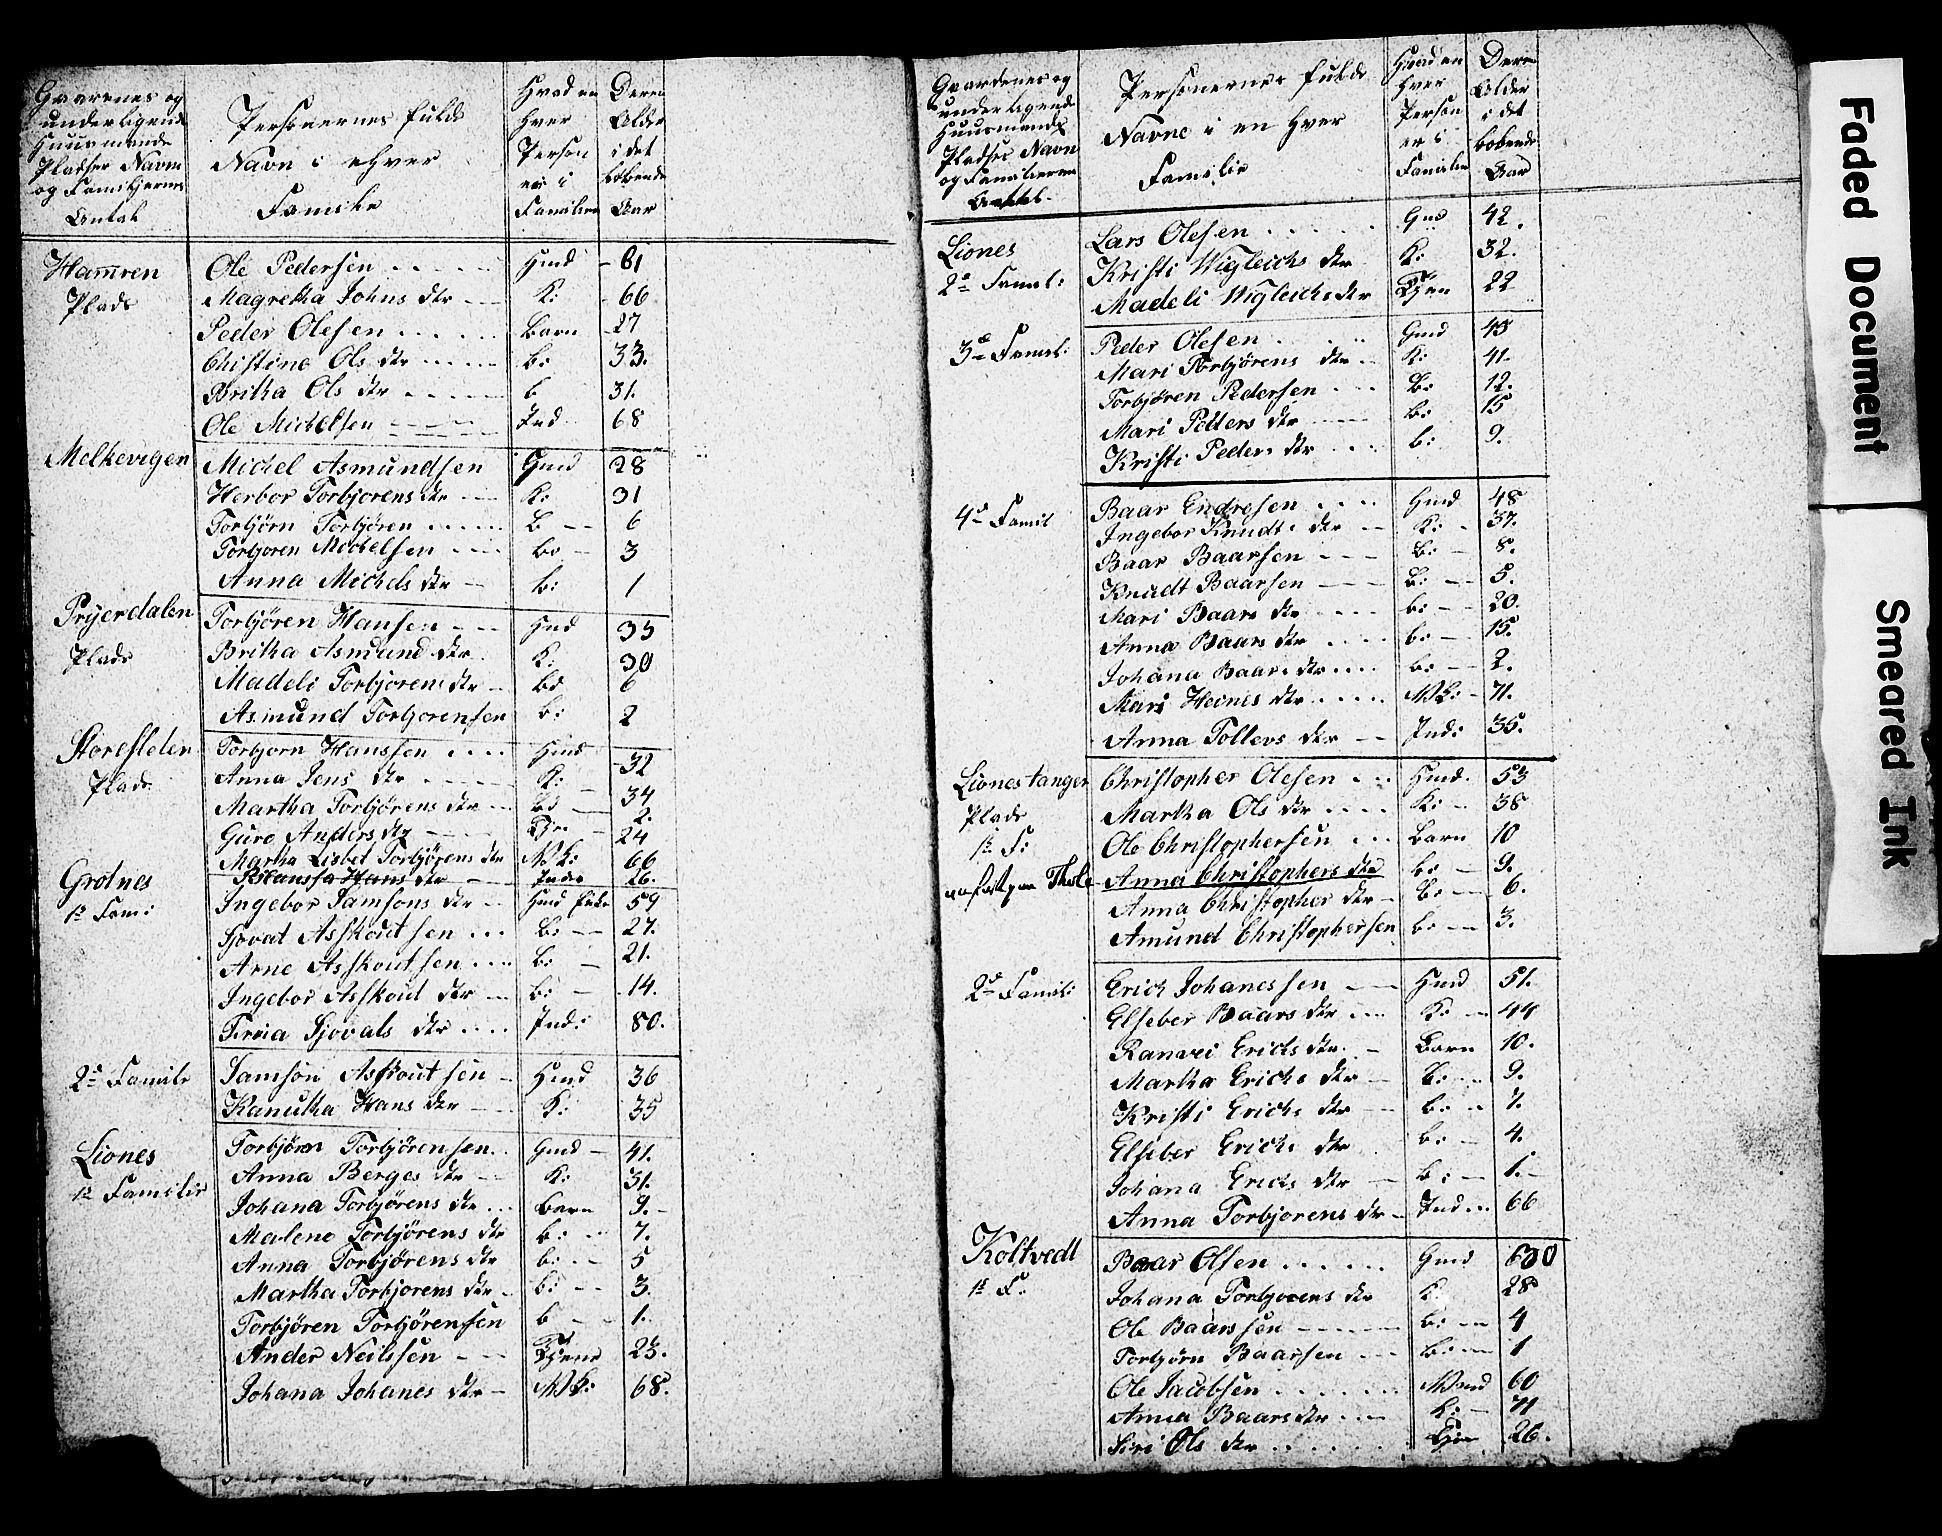 Gaarenes og
underligende
Huusmænds
Pladser Navne
og Familjernes
Antal
Personernes fulde
Navn i ehver
Familie
Hvad en
hver
Person
er i
Familien
Deres
Alder
i det
løbende
Aar
Hamren Ole Pedersen Hmd 61
Plads Magretha Johns dtr K: 66
Peder Olesen Barn 27
Christine Ols dtr b: 33.
Britha Ols dtr b 31.
Ole Michelsen Ind 68
Melkevigen Michel Asmundsen Gmd 28
Herbor Torbjorens dtr K: 31
Torbjörn Torbjören B 6
Torbjoren Michelsen b: 3
Anna Michels dtr b: 1
Pryerdalen Torbjören Hansen Hmd 35
Plads Britha Asmund dtr K: 30
Madeli Torbjorens dtr b: 6
Asmund Torbjorensen b: 2
Storesleten Torbjorn Hanssen Hmd 32
Plads Anna Jens dtr K: 34
Martha Torbjörens dtr b: 2.
Guro Anders dtr Tje: 24
Martha Lisbet Torbjörens dtr MK: 66
Hans dtr Inds 26.
Grotnes Ingebor Samsons dtr Hmd Enke 59
1te Fam: Sjovat Asskoutsen B: 27.
Arne Asskoutsen b: 21.
Ingebor Asskout dtr b: 14.
Sjovats dtr Ind: 80.
2de Famile Samson Asskoutsen Hmd 36
Kanutha Hans dtr K: 35
Liones Torbjörn Torbjörensen Gmd 41.
1te Familie Anna Berges dtr K: 31.
Johana Torbjörens dtr barn 9.
Malene Torbjörens dtr b: 7.
Anna Torbjörens dtr b: 5
Martha Torbjorens dtr b: 3.
Torbjören Torbjörensen b 1.
Ander Neilssen Tjene 23.
Johana Johanes dtr MK: 68.
Gaardenes og
underligende
Huusmends
Pladser Navn
og Familiernes
Antal
Personernes fulde
Navne i en hver
Familie
Hvad en
hver
Person
er i
Familien
Deres
Alder
i det
løbende
Aar
Liones Lars Olesen Gmd 42.
2de Famil: Kristi Wigleichs dtr K: 32.
Madeli Wigleichs dtr Tjen 22
3de Famil: Peder Olesen Gmd 45
Mari Torbjörens dtr K: 41.
Torbjören Pedersen B: 12.
Mari Peders dtr B: 15
Kristi Peders dtr b: 9.
4de Famil Baar Endresen Hmd 48
Ingebor Knudts dtr K: 37.
Baar Baarsen B: 8.
Knudt Baarsen B: 5.
Mari Baars dtr b: 20.
Anna Baars dtr b: 15.
Johana Baars dtr b: 2.
Mari Heines dtr MK: 71.
Anna Tollevs dtr Ind: 35.
Lionestanger Christopher Olesen Hmd. 53
Plads Martha Ols dtr K: 38
1te F: Ole Christophersen Barn 10
Anna Christophers dtr b: 9.
Anna Christopher dtr B: 6.
Amund Christophersen b: 3.
2de Famil: Erich Johanessen Hmd 51.
Elseber Baars dtr K: 44
Ranvei Erichs dtr. Barn 10.
Martha Erichs dtr B: 9.
Kristi Erichs dtr b: 7.
Elseber Erichs dtr b: 4.
Johana Erichs dtr b: 1.
Anna Torbjorens dtr Ind 66
Koltvedt Baar Olsen Gmd 630
1te F: Johana Torbjorens dtr K: 28
Ole Baarssen b: 4
Torbjörn Baarsen b: 1
Ole Jacobsen Mand 60
Anna Baars dtr K: 71
Siri Ols dtr Tjen 26.
Faded Document
Smeared Ink